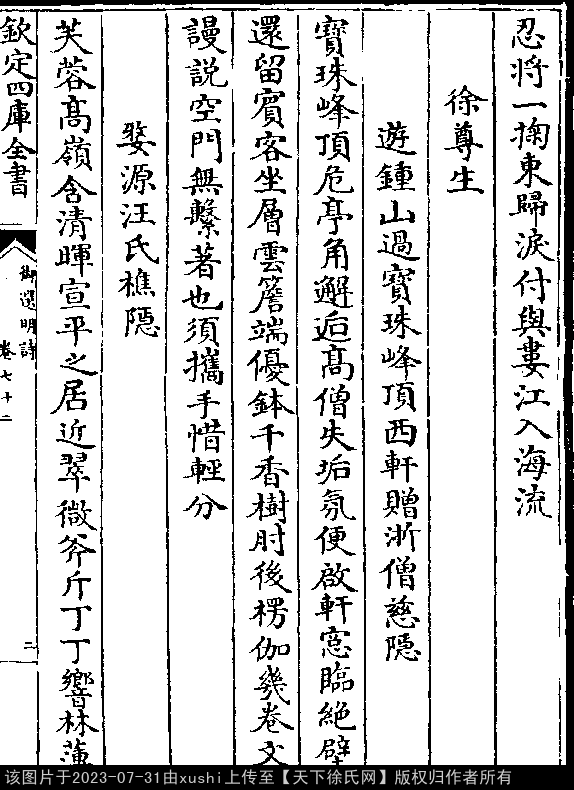 忍將一掬東歸淚付與婁江入海流
徐尊生
遊鍾山過寶珠峰頂西軒贈浙僧慈隱
寶珠峰頂危亭角邂逅高僧失垢氛便啟軒窓臨絶壁
還留賓客坐層雲簷端優鉢千香樹肘後楞伽幾卷文
謾説空門無繫著也須攜手惜輕分
婺源汪氏樵隱
芙蓉髙嶺含清暉宣平之居近翠微斧斤丁丁響林薄
欽定四庫全書
御選明詩
卷七十二
二
该图片于2023-07-31由xushi上传至【天下徐氏网】版权归作者所有